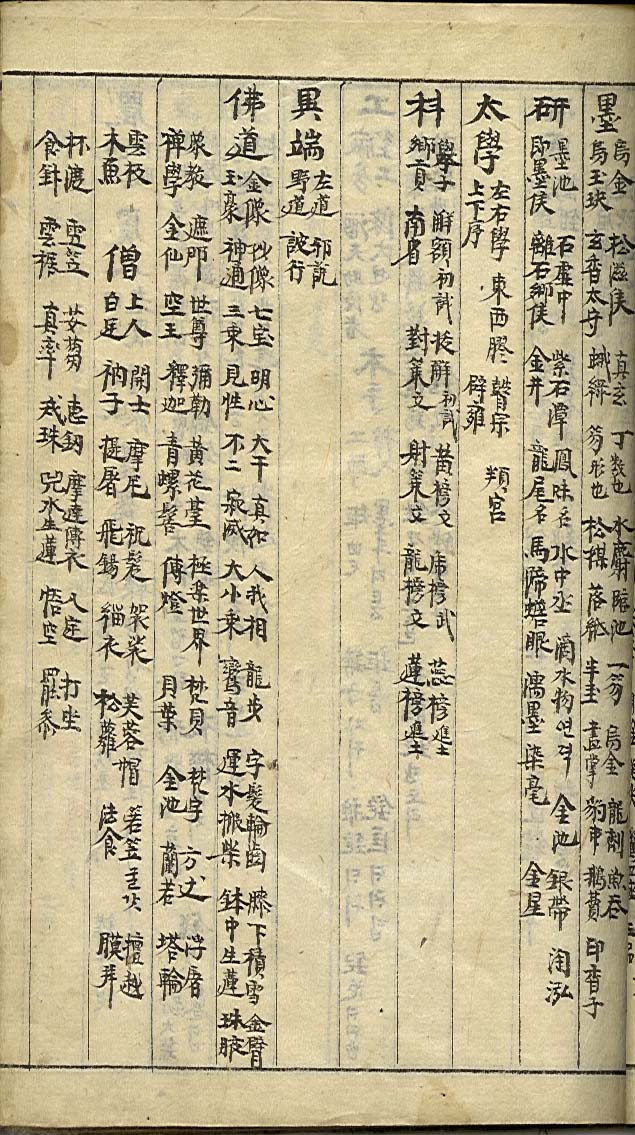 墨 烏金 松滋侯 真玄 丁數也 水麝臨池 一笏 烏金 龍劑 魚吞
烏玉玦 玄香太守 蛾綠 笏形也 松煤 落紙 半圭 畫掌 豹 鵝費 印香子
研 墨池 石虛中 紫石潭 鳳味名 水中丞 滴水物연적 金池 銀帶 陶泓
即墨侯 離石鄉侯 金井 龍尾名 馬蹄蟾眼 濡墨染毫 金星
太學 左右學 東西膠 瞽宗 頖宮
上下庠 辟雍
科 擧子 解額初試 拔解初試 黃榜文 虎榜武 蕊榜進士
鄕貢 南省 對策文 射策文 龍榜文 蓮榜進士
異端 左道 邪說
野道 詖行
佛道 金像 抄像 七宝 明心 大千 真如 人我相 龍步 字髮輪齒 膝下積雪 金臂
玉豪 神通 三乘 見性 不二 寂滅 大小乘 鸞音 運水搬柴 鉢中生蓮 珠腋
象教 遮那 世尊 彌勒 黃花臺 極楽世界 梵貝 梵字 方丈 浮屠
禪學 金仙 空王 釋迦 青螺髻 傳燈 貝葉 金池 蘭若 塔輪
雲板
木魚
僧 上人 開士 摩尼 祝髮 袈裟 芙蓉帽 箬笠 檀越
白足 衲子 提屠 飛錫 緇衣 松蘿 法食 膜拜
杯渡 雪笠 苾芻 摩達傳衣 入定 打坐
食針 雲 真率 戒珠 咒水生蓮 悟空 罷參